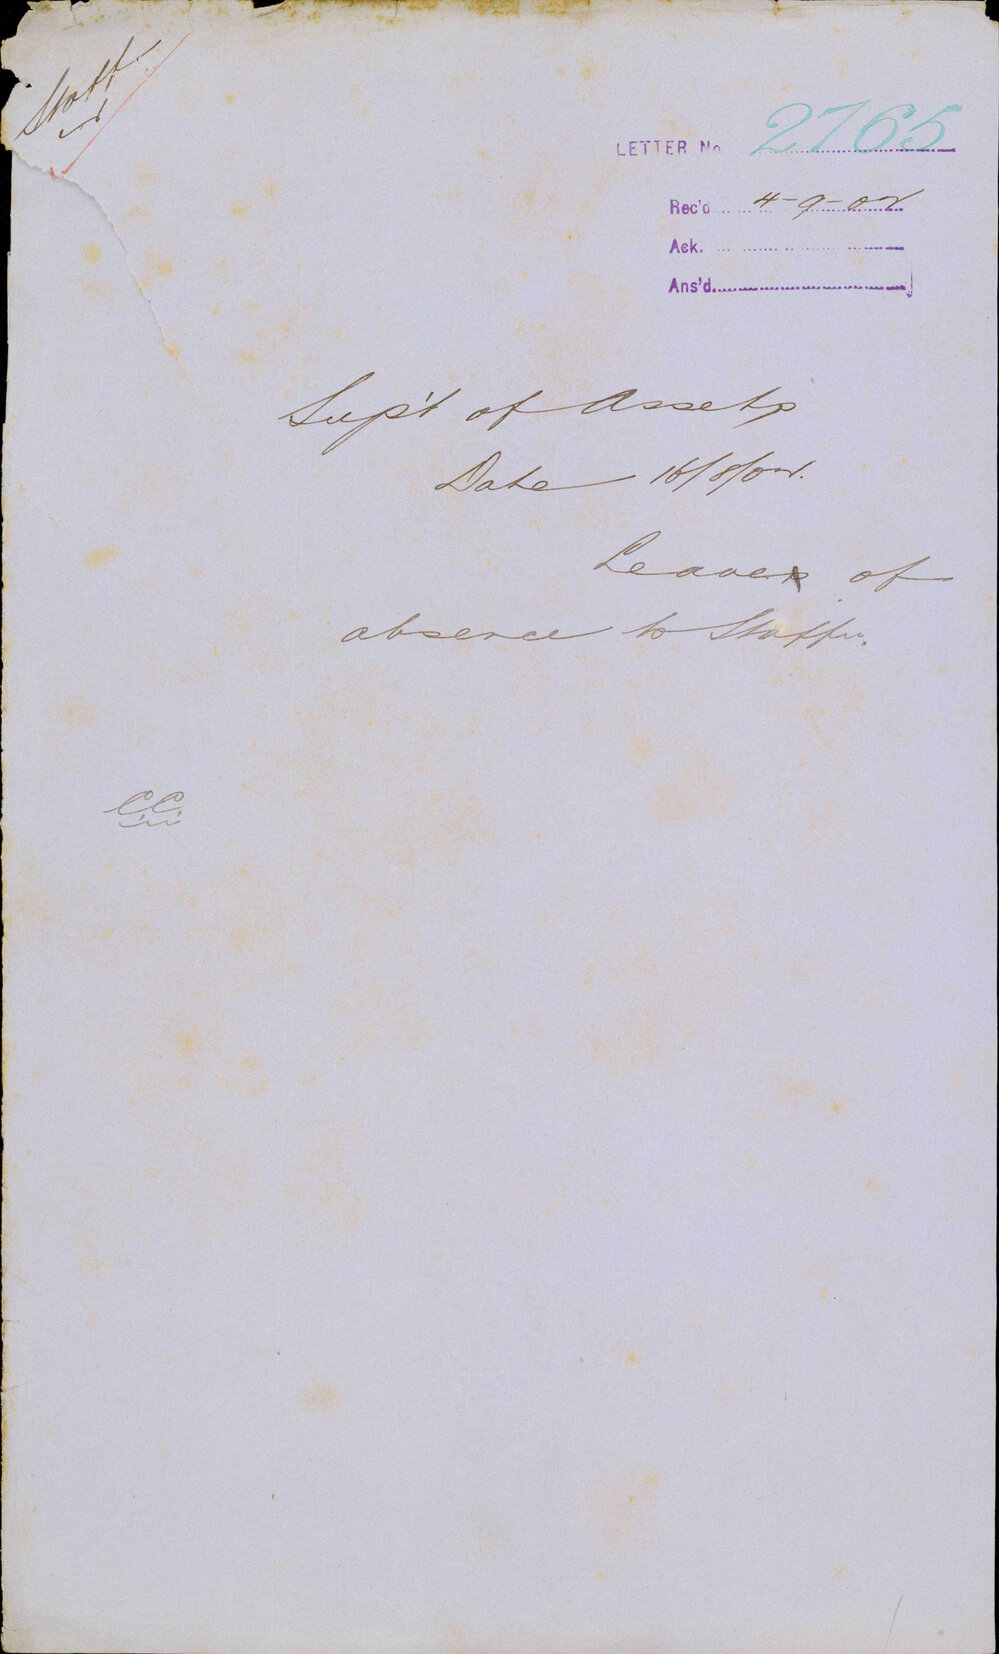 Staff
LETTER No 2765
Rec'd 4-9-02
Ack.
Ans'd.
Sup't of Assets
Date 16/8/02.
Leave of
absence to Staff
C.C.